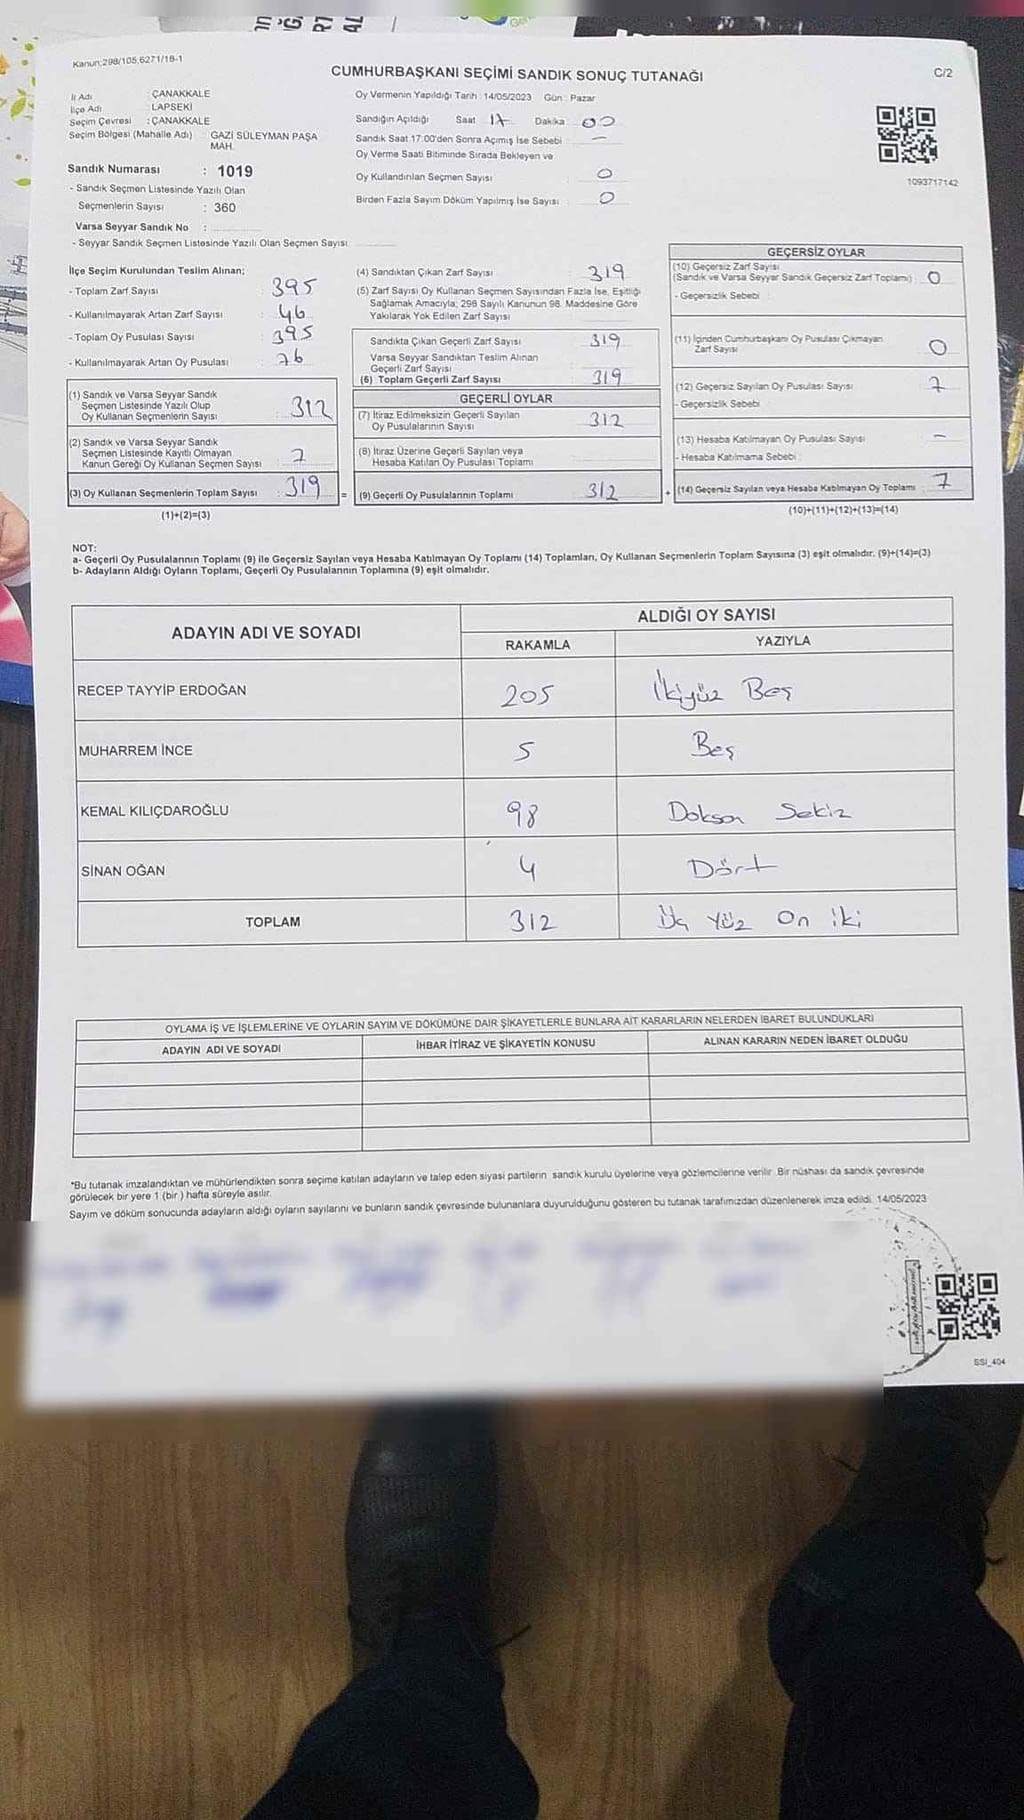 Kanun:298/105,6271/18-1
CUMHURBAŞKANI SEÇİMİ SANDIK SONUÇ TUTANAĞI
C/2
İl Adı : ÇANAKKALE
İlçe Adı : LAPSEKİ
Seçim Çevresi : ÇANAKKALE
Seçim Bölgesi (Mahalle Adı) : GAZİ SÜLEYMAN PAŞA
MAH.
Sandık Numarası : 1019
- Sandık Seçmen Listesinde Yazılı Olan
Seçmenlerin Sayısı : 360
Varsa Seyyar Sandık No :
- Seyyar Sandık Seçmen Listesinde Yazılı Olan Seçmen Sayısı:
Oy Vermenin Yapıldığı Tarih : 14/05/2023 Gün : Pazar
Sandığın Açıldığı Saat 17 Dakika 00
Sandık Saat 17:00'den Sonra Açımış İse Sebebi : –
Oy Verme Saati Bitiminde Sırada Bekleyen ve
Oy Kullandırılan Seçmen Sayısı : 0
Birden Fazla Sayım Döküm Yapılmış İse Sayısı : 0
1093717142
İlçe Seçim Kurulundan Teslim Alınan;
- Toplam Zarf Sayısı : 395
- Kullanılmayarak Artan Zarf Sayısı : 46
- Toplam Oy Pusulası Sayısı : 395
- Kullanılmayarak Artan Oy Pusulası : 76
(1) Sandık ve Varsa Seyyar Sandık
Seçmen Listesinde Yazılı Olup
Oy Kullanan Seçmenlerin Sayısı : 312
(2) Sandık ve Varsa Seyyar Sandık
Seçmen Listesinde Kayıtlı Olmayan
Kanun Gereği Oy Kullanan Seçmen Sayısı : 7
(3) Oy Kullanan Seçmenlerin Toplam Sayısı : 319
(1)+(2)=(3)
(4) Sandıktan Çıkan Zarf Sayısı : 319
(5) Zarf Sayısı Oy Kullanan Seçmen Sayısından Fazla İse, Eşitliği
Sağlamak Amacıyla; 298 Sayılı Kanunun 98. Maddesine Göre
Yakılarak Yok Edilen Zarf Sayısı :
Sandıkta Çıkan Geçerli Zarf Sayısı : 319
Varsa Seyyar Sandıktan Teslim Alınan
Geçerli Zarf Sayısı :
(6) Toplam Geçerli Zarf Sayısı : 319
GEÇERLİ OYLAR
(7) İtiraz Edilmeksizin Geçerli Sayılan
Oy Pusulalarının Sayısı : 312
(8) İtiraz Üzerine Geçerli Sayılan veya
Hesaba Katılan Oy Pusulası Toplamı :
= (9) Geçerli Oy Pusulalarının Toplamı : 312
GEÇERSİZ OYLAR
(10) Geçersiz Zarf Sayısı
(Sandık ve Varsa Seyyar Sandık Geçersiz Zarf Toplamı) : 0
- Geçersizlik Sebebi :
(11) İçinden Cumhurbaşkanı Oy Pusulası Çıkmayan
Zarf Sayısı : 0
(12) Geçersiz Sayılan Oy Pusulası Sayısı : 7
- Geçersizlik Sebebi :
(13) Hesaba Katılmayan Oy Pusulası Sayısı : –
- Hesaba Katılmama Sebebi :
+ (14) Geçersiz Sayılan veya Hesaba Katılmayan Oy Toplamı : 7
(10)+(11)+(12)+(13)=(14)
NOT:
a- Geçerli Oy Pusulalarının Toplamı (9) ile Geçersiz Sayılan veya Hesaba Katılmayan Oy Toplamı (14) Toplamları, Oy Kullanan Seçmenlerin Toplam Sayısına (3) eşit olmalıdır. (9)+(14)=(3)
b- Adayların Aldığı Oyların Toplamı, Geçerli Oy Pusulalarının Toplamına (9) eşit olmalıdır.
ADAYIN ADI VE SOYADI ALDIĞI OY SAYISI
RAKAMLA YAZIYLA
RECEP TAYYİP ERDOĞAN 205 İkiyüz Beş
MUHARREM İNCE 5 Beş
KEMAL KILIÇDAROĞLU 98 Doksan Sekiz
SİNAN OĞAN 4 Dört
TOPLAM 312 Üç Yüz On iki
OYLAMA İŞ VE İŞLEMLERİNE VE OYLARIN SAYIM VE DÖKÜMÜNE DAİR ŞİKAYETLERLE BUNLARA AİT KARARLARIN NELERDEN İBARET BULUNDUKLARI
ADAYIN ADI VE SOYADI İHBAR İTİRAZ VE ŞİKAYETİN KONUSU ALINAN KARARIN NEDEN İBARET OLDUĞU
*Bu tutanak imzalandıktan ve mühürlendikten sonra seçime katılan adayların ve talep eden siyasi partilerin sandık kurulu üyelerine veya gözlemcilerine verilir. Bir nüshası da sandık çevresinde
görülecek bir yere 1 (bir ) hafta süreyle asılır.
Sayım ve döküm sonucunda adayların aldığı oyların sayılarını ve bunların sandık çevresinde bulunanlara duyurulduğunu gösteren bu tutanak tarafımızdan düzenlenerek imza edildi. 14/05/2023
SSI_404